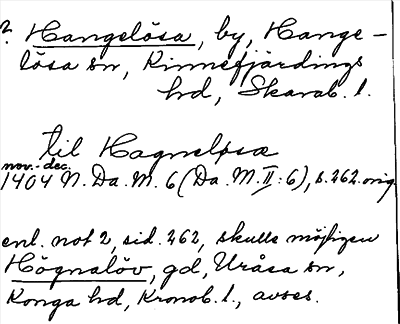 ? Hangelösa, by, Hange-
lösa sn, Kinnefjärdings
hd, Skarab. l.
til Hagnelpsæ
nov.-dec.
1404 N. Da. M. 6 (Da. M. II: 6), s. 262. orig.
enl. not 2, sid. 262, skulle möjligen
Högnalöv, gd, Uråsa sn,
Konga hd, Kronob. l., avses.